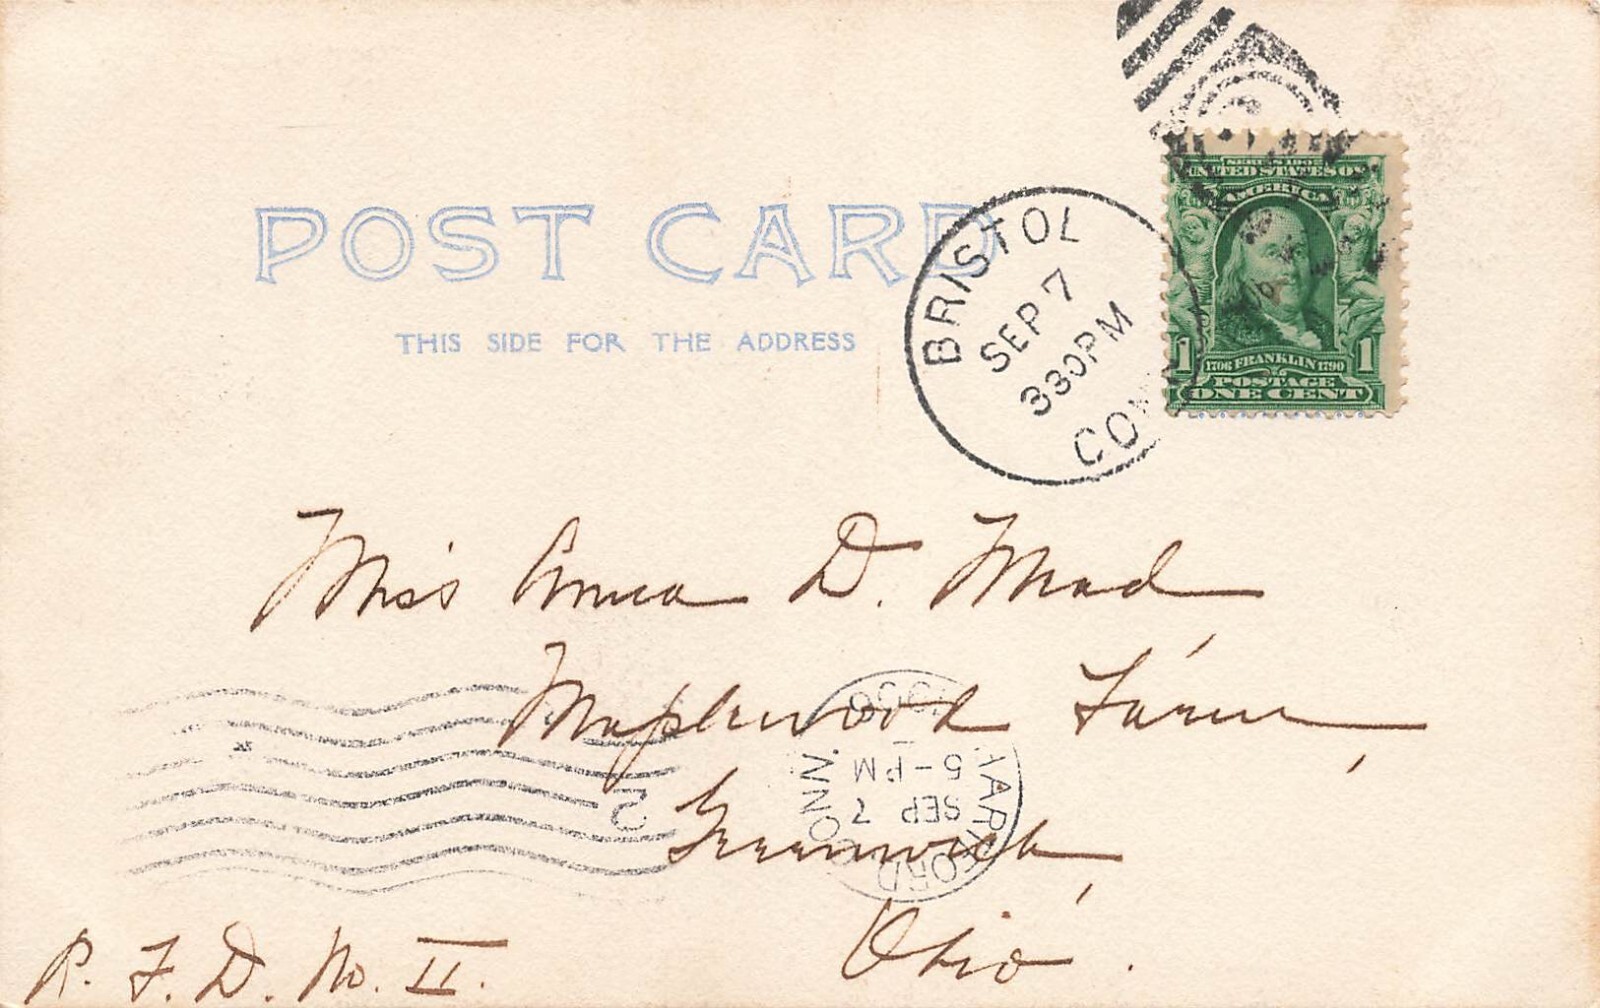 POST CARD
THIS SIDE FOR THE ADDRESS
BRISTOL
SEP 7
330PM
CONN
SERIES 1902
UNITED STATES OF
AMERICA
1 1706 FRANKLIN 1790 1
POSTAGE
ONE CENT
Miss Anna D. Mead
Maplewood Farm,
Greenwich,
Ohio.
R. F. D. No. II.
HARTFORD CONN.
SEP 7
5-PM
1906
2